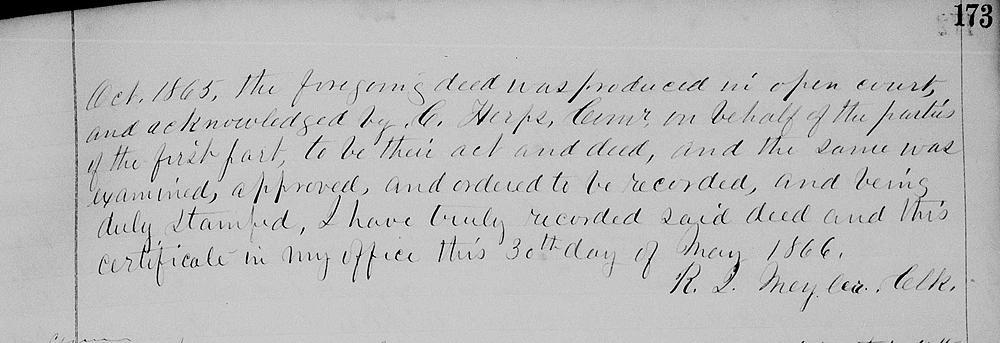 173
Oct. 1865, the foregoing deed was produced in open court,
and acknowledged by C. Herps, Comr, on behalf of the parties
of the first part, to be their act and deed, and the same was
examined, approved, and ordered to be recorded, and being
duly stamped, I have truly recorded said deed and this
certificate in my office this 30th day of May 1866.
R. Clk.